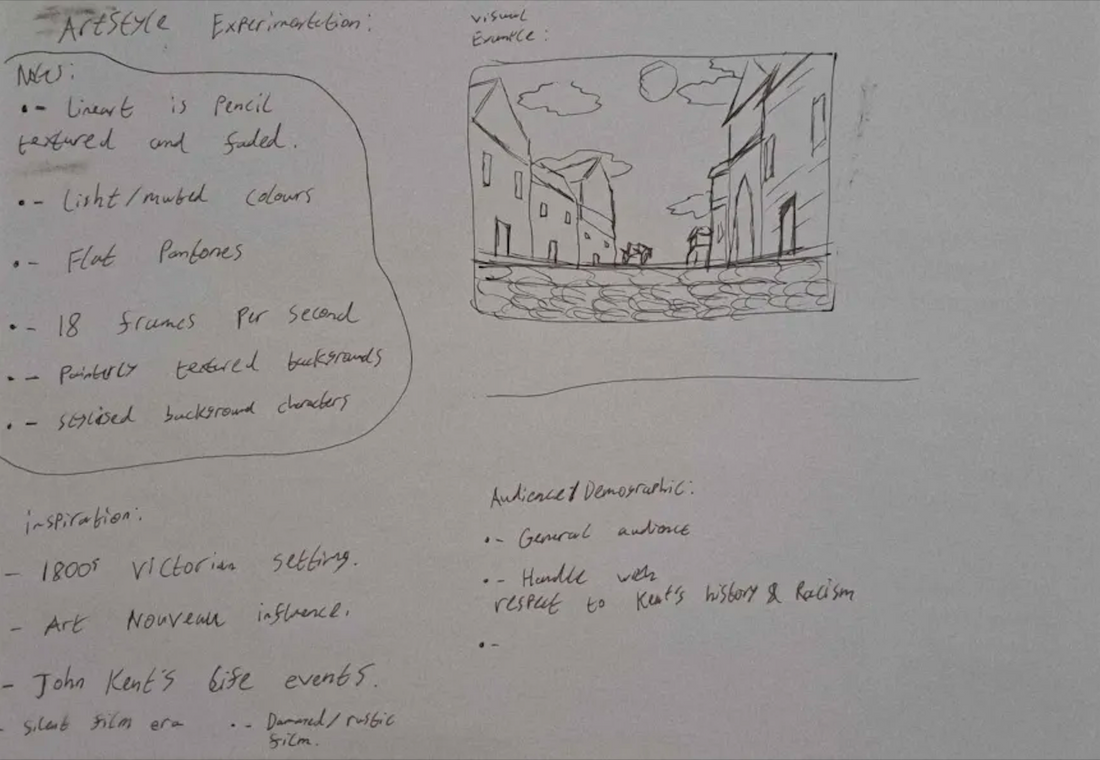 ArtStyle Experimentation:
Notes:
•- Lineart is Pencil
textured and faded.
•- Light/muted colours
•- Flat Pantones
•- 18 frames Per second
•- Painterly textured backgrounds
•- Stylised background characters
inspiration:
- 1800s Victorian setting.
- Art Nouveau influence.
- John Kent's life events.
- Silent film era
•- Damaged/rustic
film.
Visual
Example:
Audience/Demographic:
•- General audience
•- Handle with
respect to Kent's history & Racism
•-